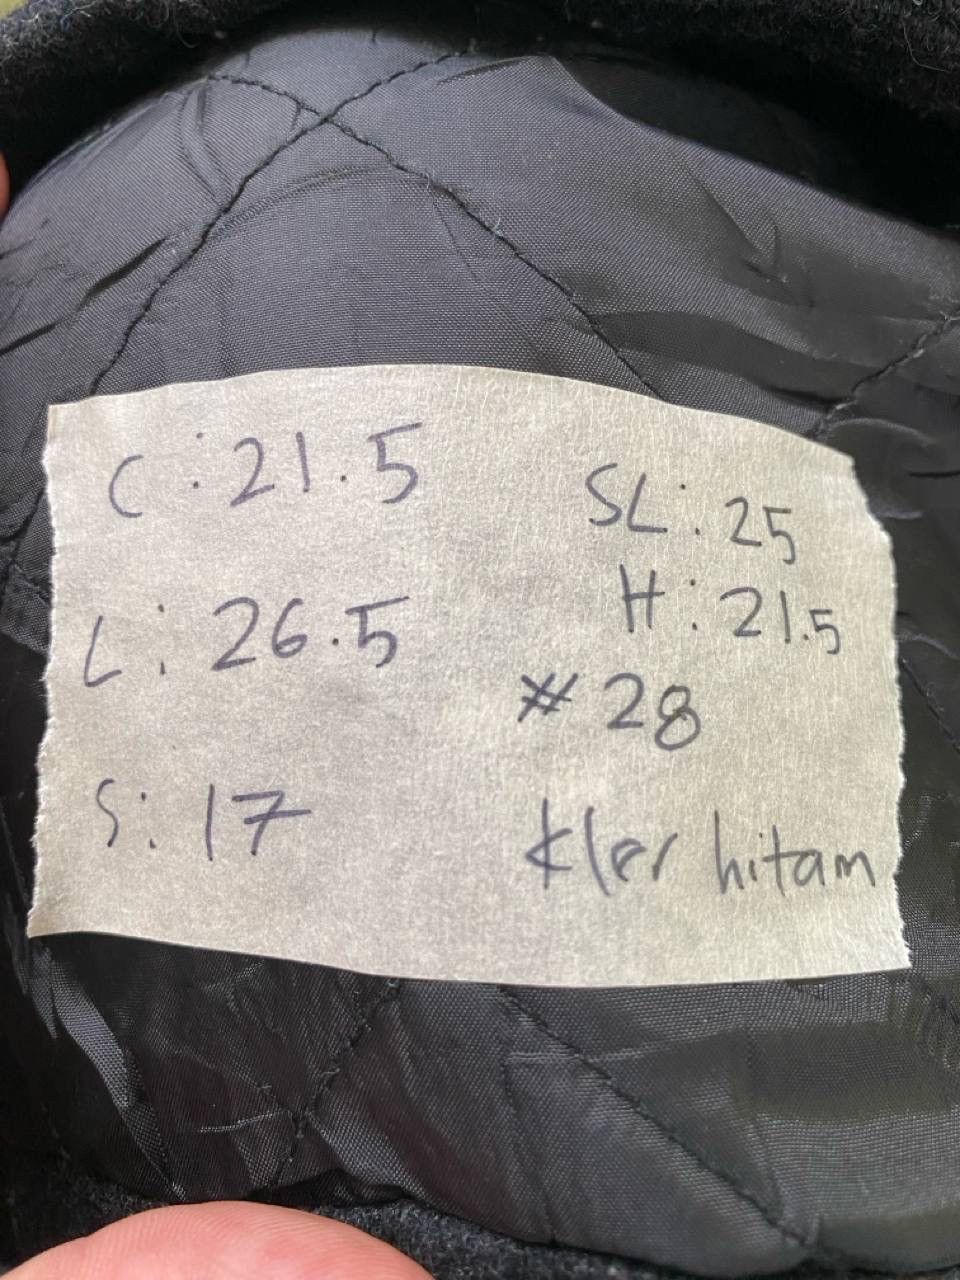 C : 21.5
L : 26.5
S : 17
SL : 25
H : 21.5
# 28
kler hitam